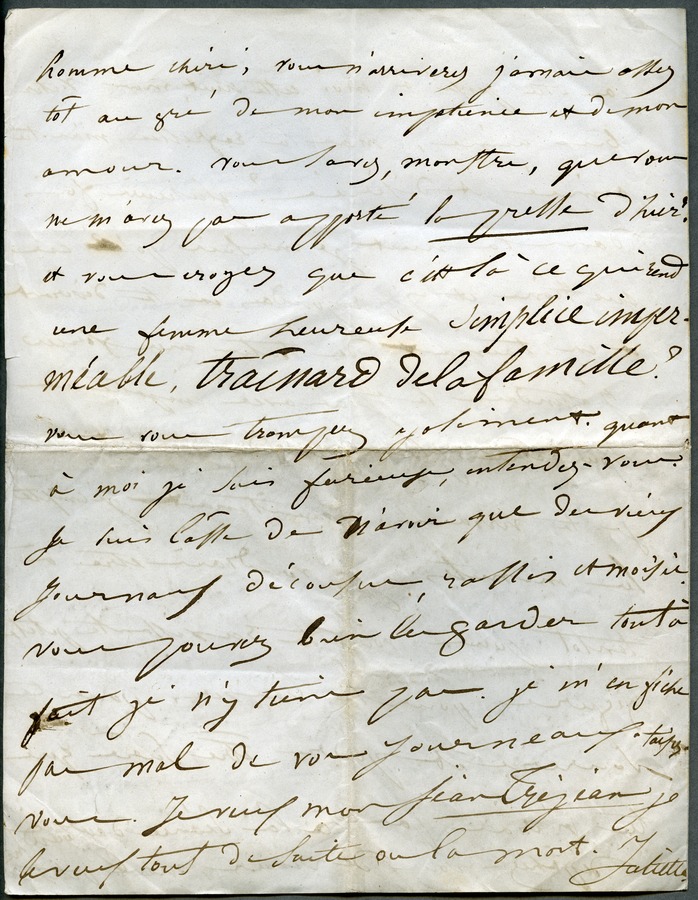 homme chéri, vous n'arriverez jamais assez
tôt au gré de mon impatience et de mon
amour. vous savez, monstre, que vous
ne m'avez pas apporté la presse d'hier?
et vous croyez que c'est là ce qui rend
une femme heureuse Simplice imper-
méable, traînard de la famille?
vous vous trompez joliment. quant
à moi je suis furieuse, entendez-vous.
Je suis lasse de n'avoir que de vieux
journaux décousus, rassis et moisis.
vous pouvez bien les garder tout à
fait je n'y tiens pas. je m'en fiche
pas mal de vos journeaux.
vous. Je veux mon Jean Tréjean je
le veux tout de suite ou la mort. Juliette